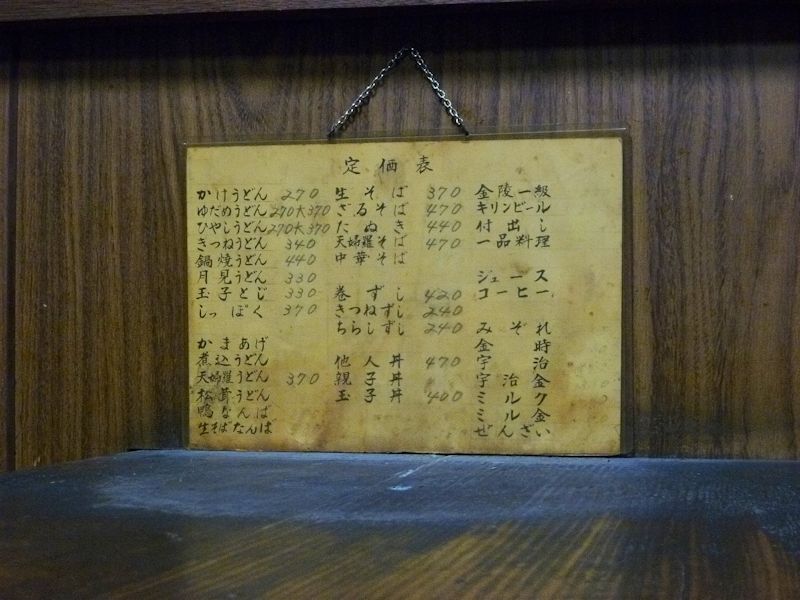 定価表
かけうどん 270
ゆだめうどん 270大370
ひやしうどん 270大370
きつねうどん 340
鍋焼うどん 440
月見うどん 330
玉子とじ 330
しっぽく 370
かまあげ
煮込うどん
天婦羅うどん 370
松茸うどん
鴨なんば
生そばなんば
生そば 370
ざるそば 470
たぬき 440
天婦羅そば 470
中華そば
巻ずし 420
きつねずし 240
ちらしずし 240
他人丼 470
親子丼
玉子丼 400
金陵一級
キリンビール
付出し
一品料理
ジュース
コーヒー
みぞれ
金時
宇治
宇治金
ミルク
ミルク金
ぜんざい